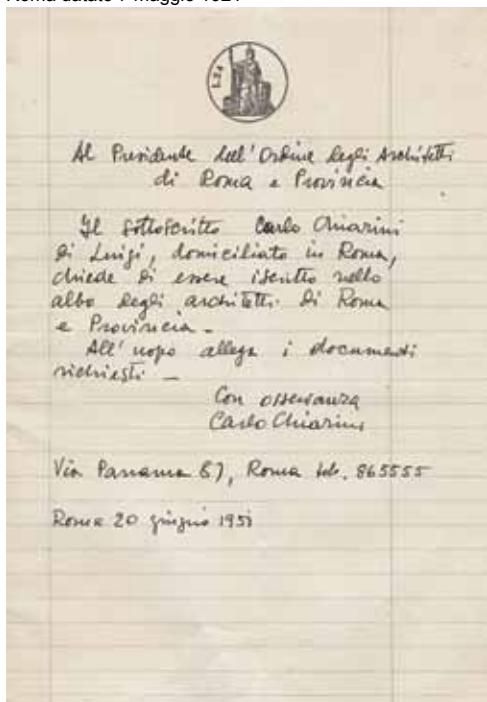 Roma datato 7 maggio 1921
Al Presidente dell'Ordine degli Architetti
di Roma e Provincia
Il sottoscritto Carlo Chiarini
di Luigi, domiciliato in Roma,
chiede di essere iscritto nello
albo degli architetti di Roma
e Provincia -
All'uopo allega i documenti
richiesti -
Con osservanza
Carlo Chiarini
Via Panama 87, Roma tel. 865555
Roma 20 giugno